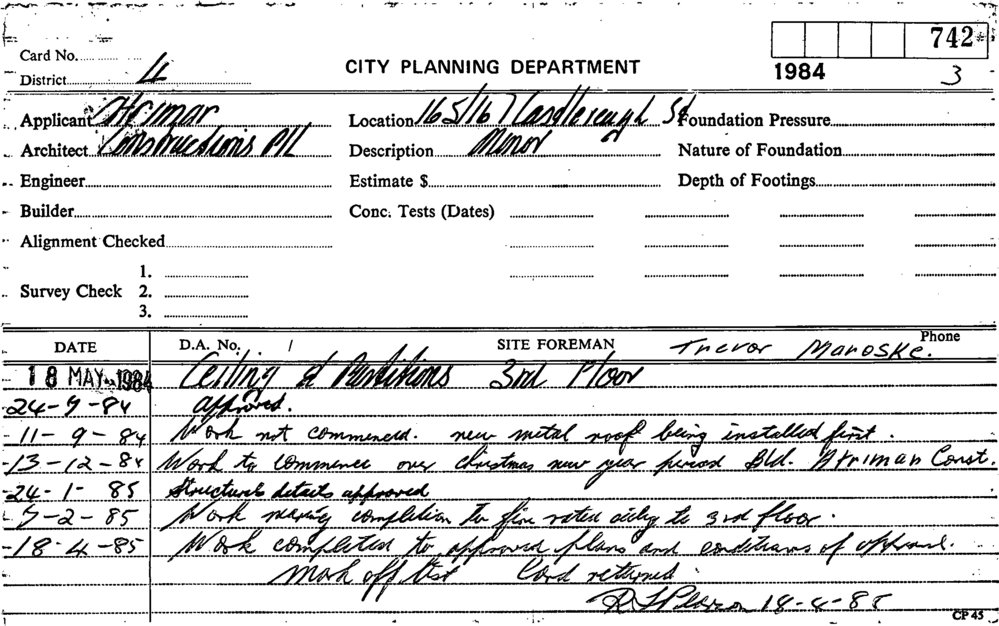 742
Card No.
District 4
CITY PLANNING DEPARTMENT
1984
3
Applicant
Location 165/167 Castlereagh St
Foundation Pressure
Architect Constructions P/L
Description Minor
Nature of Foundation
Engineer
Estimate $
Depth of Footings
Builder
Conc. Tests (Dates)
Alignment Checked
1.
Survey Check 2.
3.
DATE D.A. No. / SITE FOREMAN Trevor Maroske. Phone
18 MAY 1984 Ceiling & Partitions 3rd Floor
24-7-84 approved.
11-9-84 Work not commenced. new metal roof being installed first.
13-12-84 Work to commence over christmas new year period Bld. Atriman Const.
24-1-85 Structural details approved
7-2-85 Work nearing completion to fire rated ceiling to 3rd floor.
18-4-85 Work completed to approved plans and conditions of approval.
Mark off list Card returned
18-4-85
CP 45